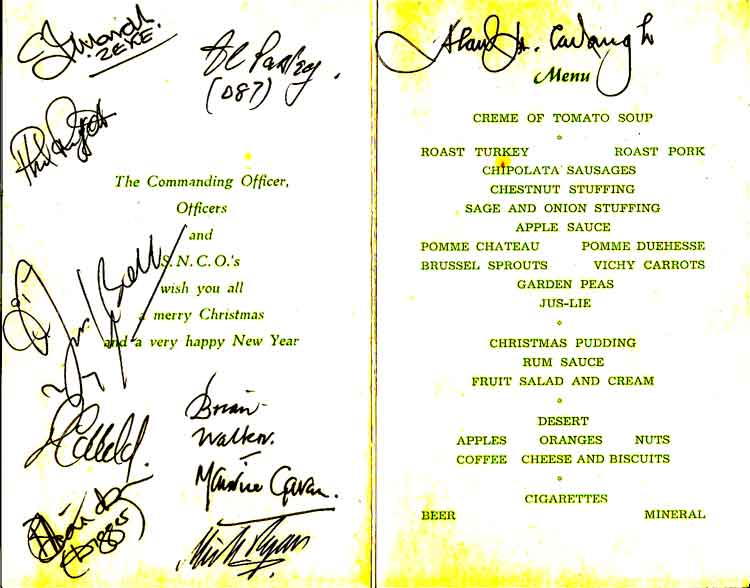 ZEKE.
(D87)
The Commanding Officer,
Officers
and
S.N.C.O.'s
wish you all
a merry Christmas
and a very happy New Year
Brian
Walker.
Maurice
(Digger)
Mick Ryan
Menu
CREME OF TOMATO SOUP
ROAST TURKEY ROAST PORK
CHIPOLATA SAUSAGES
CHESTNUT STUFFING
SAGE AND ONION STUFFING
APPLE SAUCE
POMME CHATEAU POMME DUEHESSE
BRUSSEL SPROUTS VICHY CARROTS
GARDEN PEAS
JUS-LIE
CHRISTMAS PUDDING
RUM SAUCE
FRUIT SALAD AND CREAM
DESERT
APPLES ORANGES NUTS
COFFEE CHEESE AND BISCUITS
CIGARETTES
BEER MINERAL